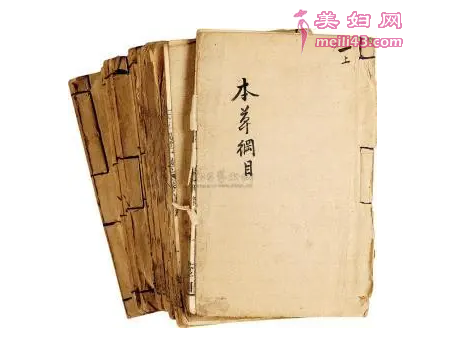 美妇网
meili43.com
上
本草綱目